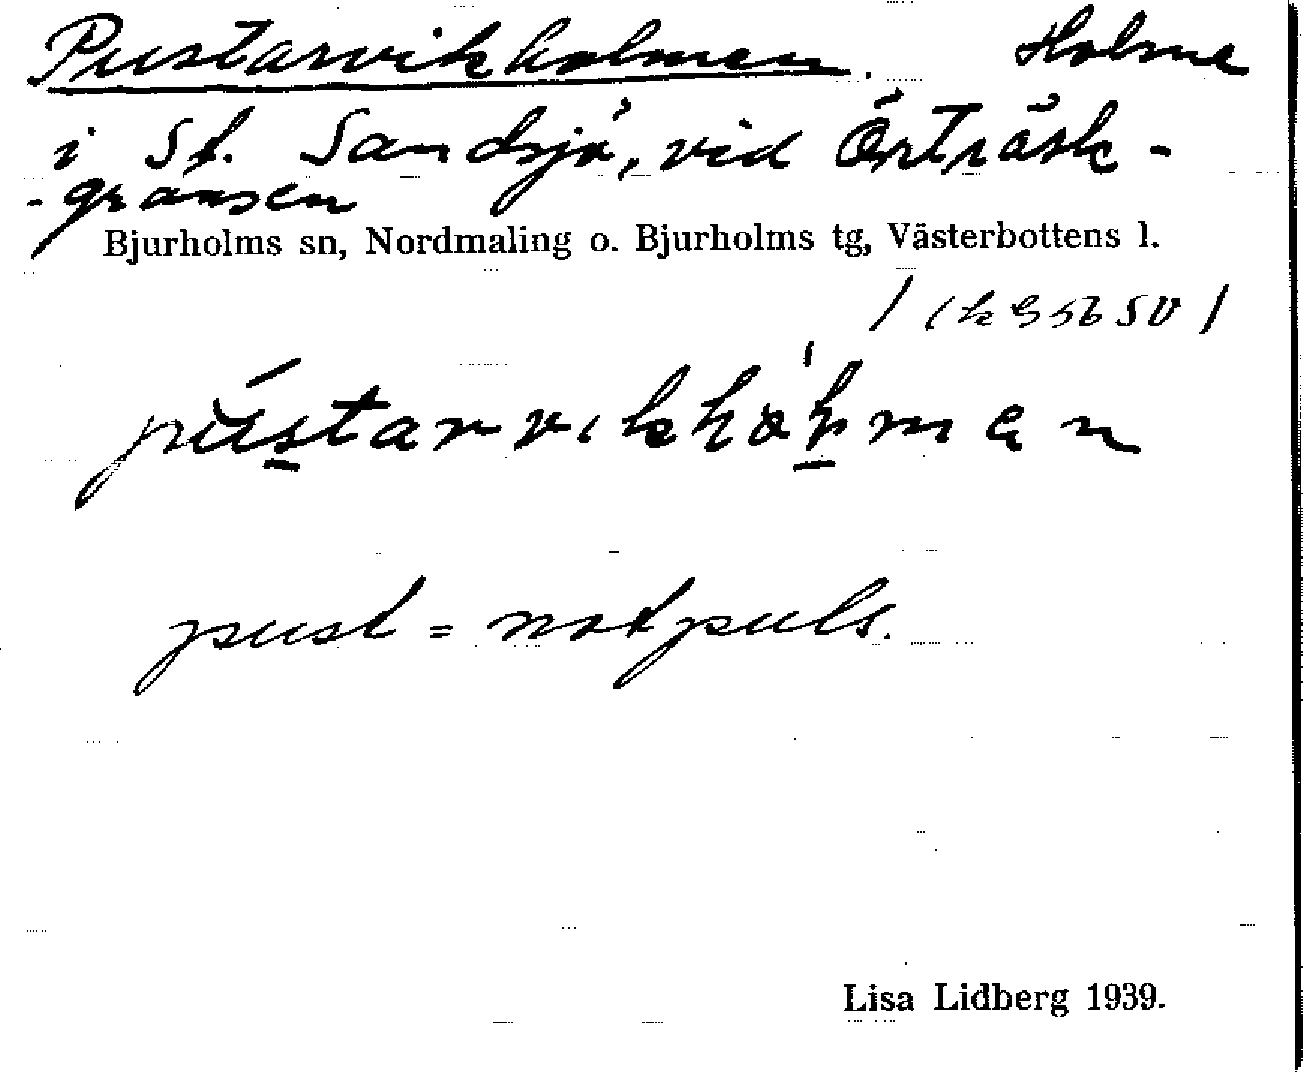 Pustarvikholmen. Holme
i St. Sandsjö, vid Örträsk-
-gränsen
Bjurholms sn, Nordmaling o. Bjurholms tg, Västerbottens l.
pust = notpuls.
Lisa Lidberg 1939.